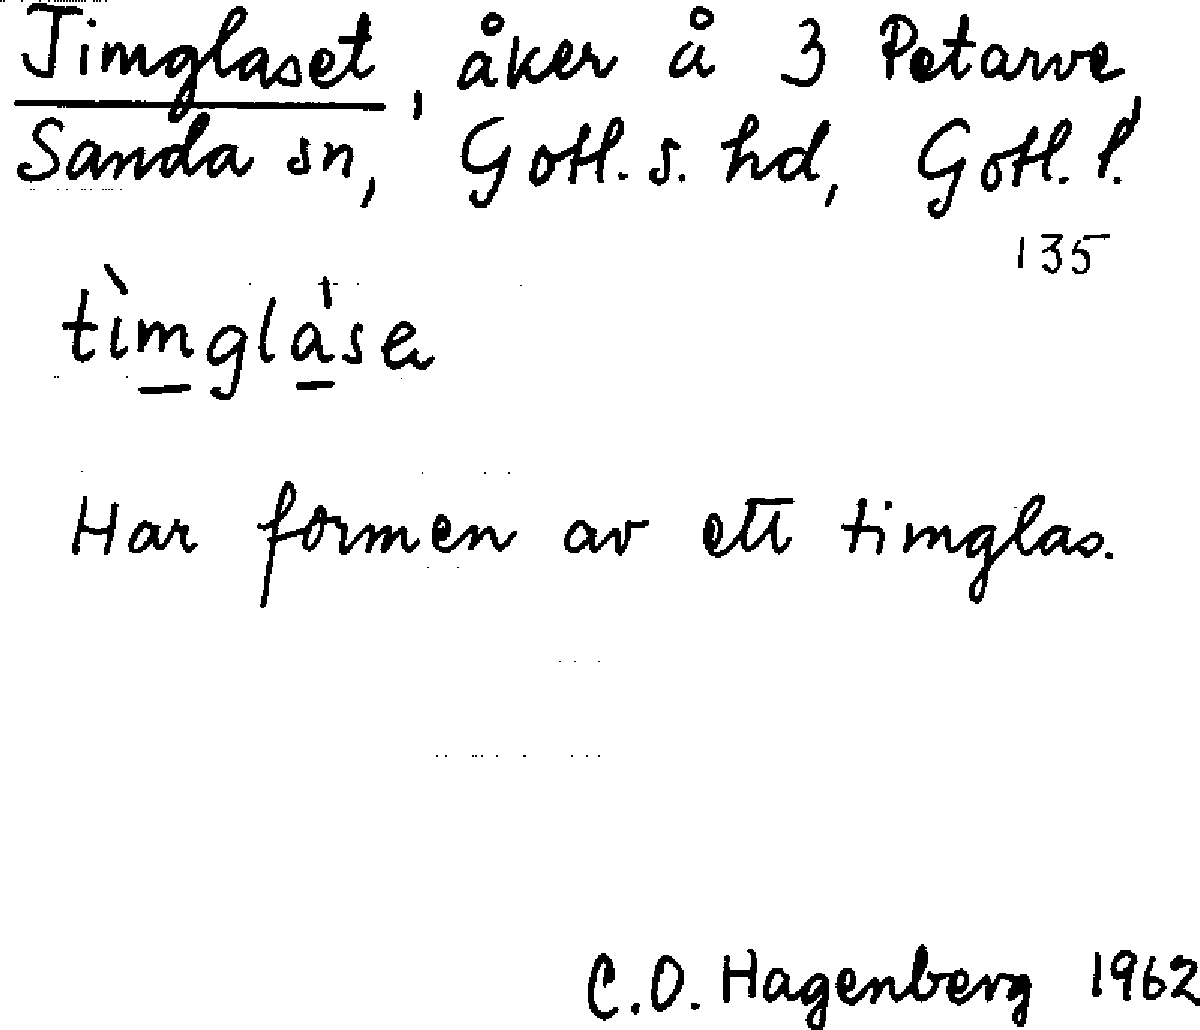 Timglaset, åker å 3 Petarve,
Sanda sn, Gotl. s. hd, Gotl. l.
135
tìmglàsa
Har formen av ett timglas.
C.O. Hagenberg 1962